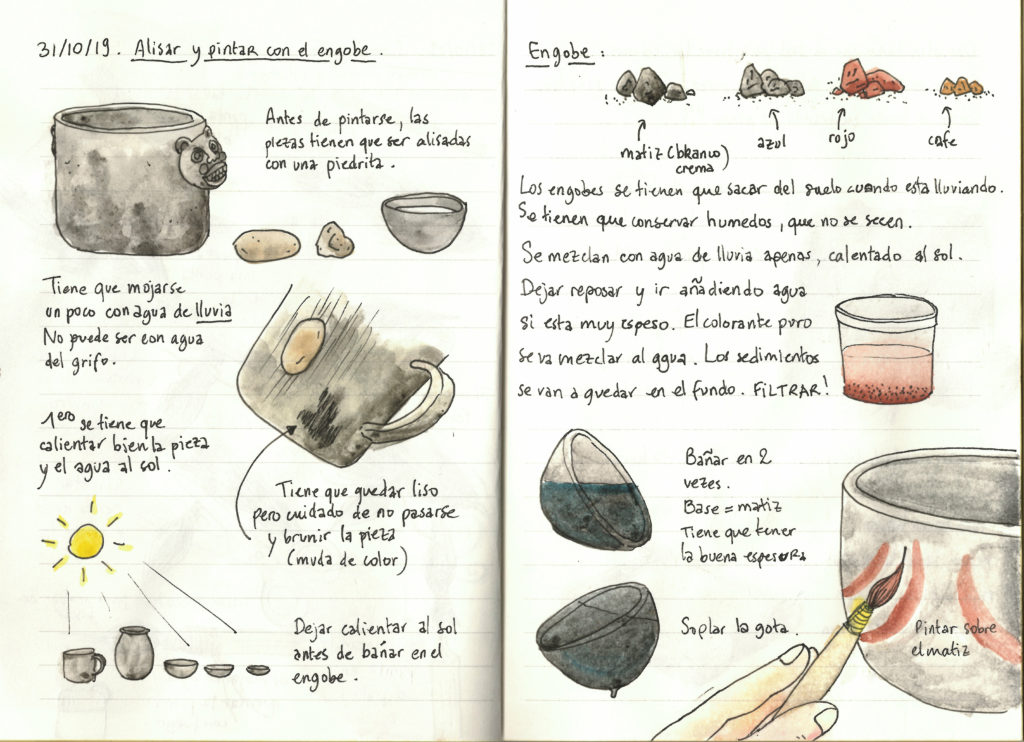 31/10/19. Alisar y pintar con el engobe.
Antes de pintarse, las
piezas tienen que ser alisadas
con una piedrita.
Tiene que mojarse
un poco con agua de lluvia
No puede ser con agua
del grifo.
1ero se tiene que
calientar bien la pieza
y el agua al sol.
Tiene que quedar liso
pero cuidado de no pasarse
y brunir la pieza
(muda de color)
Dejar calientar al sol
antes de bañar en el
engobe.
Engobe :
matiz (blanco)
crema
azul
rojo
cafe
Los engobes se tienen que sacar del suelo cuando esta lluviando.
Se tienen que conservar humedos, que no se secen.
Se mezclan con agua de lluvia apenas, calentado al sol.
Dejar reposar y ir añadiendo agua
si esta muy espeso. El colorante puro
se va mezclar al agua. Los sedimientos
se van a quedar en el fundo. FiLTRAR!
Bañar en 2
vezes.
Base = matiz
Tiene que tener
la buena espesura
Soplar la gota.
Pintar sobre
el matiz